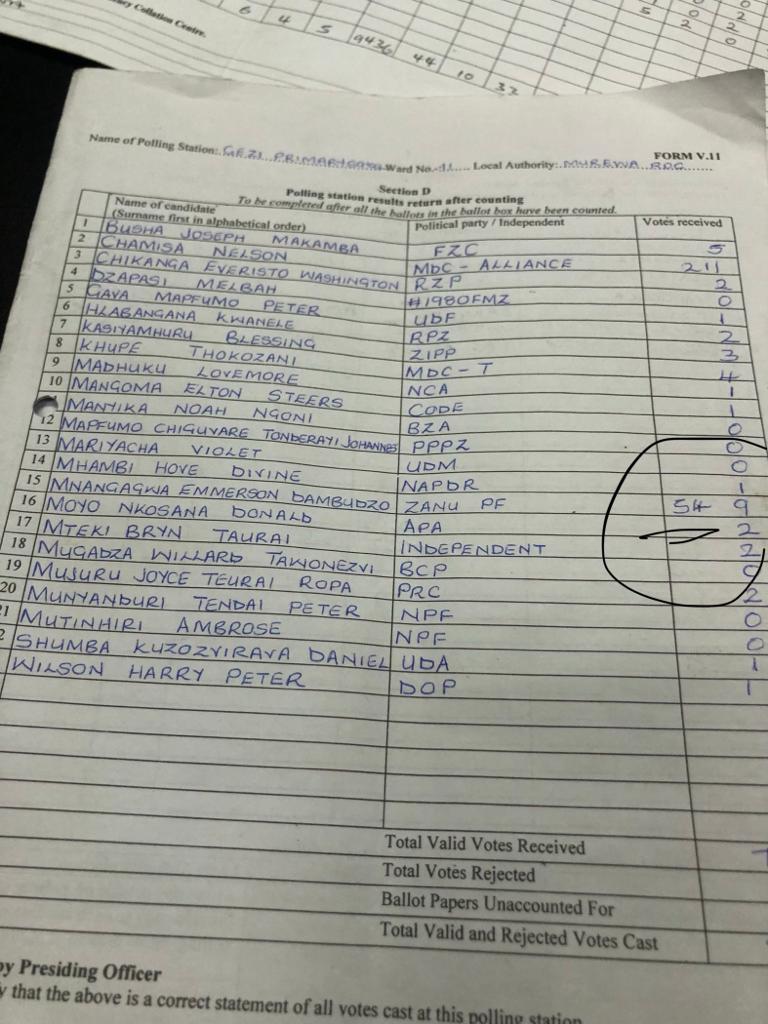 ncy Collation Centre.
6 4 5 9436 44 10 33
5 0 2
2 2
0 0
FORM V.11
Name of Polling Station: GEZI PRIMARY Ward No. 11 Local Authority: MUREWA RDC
Section D
Polling station results return after counting
To be completed after all the ballots in the ballot box have been counted.
Name of candidate (Surname first in alphabetical order) Political party / Independent Votes received
1 BUSHA JOSEPH MAKAMBA FZC 5
2 CHAMISA NELSON MDC - ALLIANCE 211
3 CHIKANGA EVERISTO WASHINGTON RZP 2
4 DZAPASI MELBAH #1980FMZ 0
5 GAVA MAPFUMO PETER UDF 1
6 HLABANGANA KWANELE RPZ 2
7 KASIYAMHURU BLESSING ZIPP 3
8 KHUPE THOKOZANI MDC - T 4
9 MADHUKU LOVEMORE NCA 1
10 MANGOMA ELTON STEERS CODE 1
MANYIKA NOAH NGONI BZA 0
12 MAPFUMO CHIGUVARE TONDERAYI JOHANNES PPPZ 0
13 MARIYACHA VIOLET UDM 0
14 MHAMBI HOVE DIVINE NAPDR 1
15 MNANGAGWA EMMERSON DAMBUDZO ZANU PF 54 9
16 MOYO NKOSANA DONALD APA 2
17 MTEKI BRYN TAURAI INDEPENDENT 2
18 MUGADZA WILLARD TAWONEZVI BCP
19 MUJURU JOYCE TEURAI ROPA PRC 2
20 MUNYANDURI TENDAI PETER NPF 0
21 MUTINHIRI AMBROSE NPF 0
2 SHUMBA KUZOZVIRAVA DANIEL UDA 1
WILSON HARRY PETER DOP 1
Total Valid Votes Received
Total Votes Rejected
Ballot Papers Unaccounted For
Total Valid and Rejected Votes Cast
by Presiding Officer
y that the above is a correct statement of all votes cast at this polling station